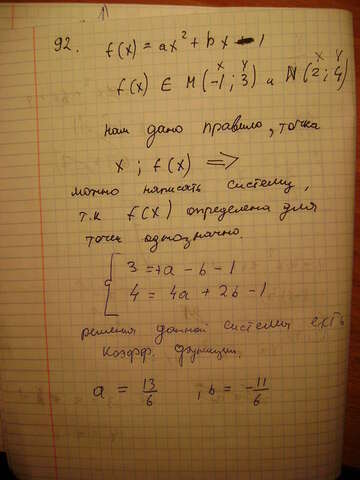 1)
92. f(x) = ax² + bx - 1
x y x y
f(x) ∈ M(-1; 3) и N(2; 4)
нам дано правило, точка
x ; f(x) =>
можно написать систему,
т.к f(x) определена для
точек однозначно.
{ 3 = +a - b - 1
4 = 4a + 2b - 1
решения данной системы есть
коэфф. функции.
a = 13/6 , b = -11/6